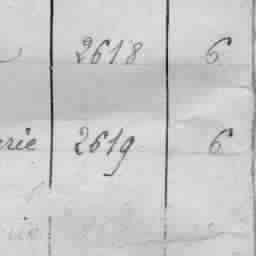 2618 6
rie 2619 6